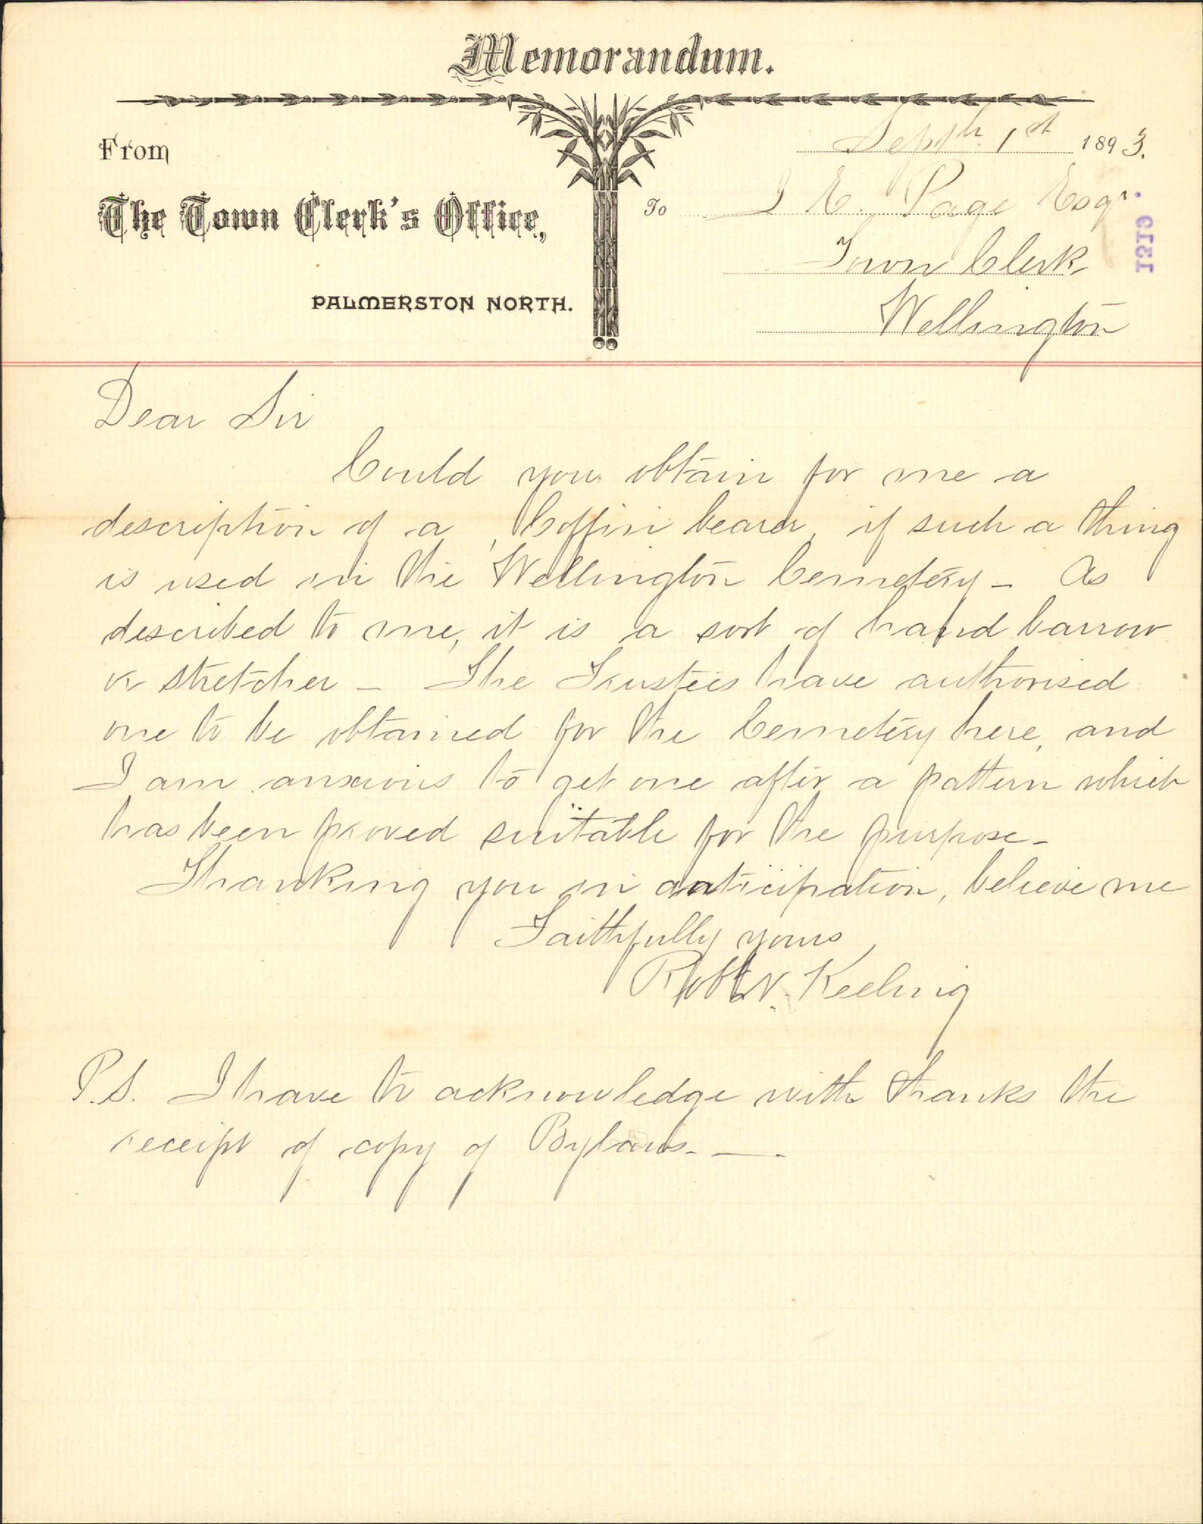 Memorandum.
From
The Town Clerk's Office,
PALMERSTON NORTH.
Septr. 1st 1893.
To J E. Page Esqr.
Town Clerk
Wellington
1219
Dear Sir
Could you obtain for me a
description of a Coffin bearer, if such a thing
is used in the Wellington Cemetery - As
described to me, it is a sort of hand barrow
or stretcher - The Trustees have authorised
one to be obtained for the Cemetery here, and
I am anxious to get one after a pattern which
has been proved suitable for the purpose -
Thanking you in anticipation, believe me
Faithfully yours
Robt N. Keeling
P.S. I have to acknowledge with thanks the
receipt of copy of Bylaws. -